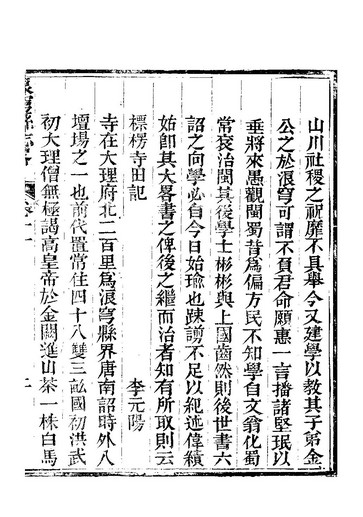 山川社稷之祝靡不具舉今又建學以教其子弟金
公之於浪穹可謂不負君命願惠一言播諸堅珉以
垂將來愚觀閩蜀昔為偏方民不知學自文翁化蜀
常袞治閩其後學士彬彬與上國齒然則後世書六
詔之向學必自今日始瑜也疎謭不足以紀述偉績
始即其大畧書之俾後之繼而治者知有所取則云
標楞寺田記
李元陽
寺在大理府北二百里為浪穹縣界唐南詔時外八
壇場之一也前代置常住四十八雙三畝國初洪武
初大理僧無極謁高皇帝於金闕進山茶一株白馬